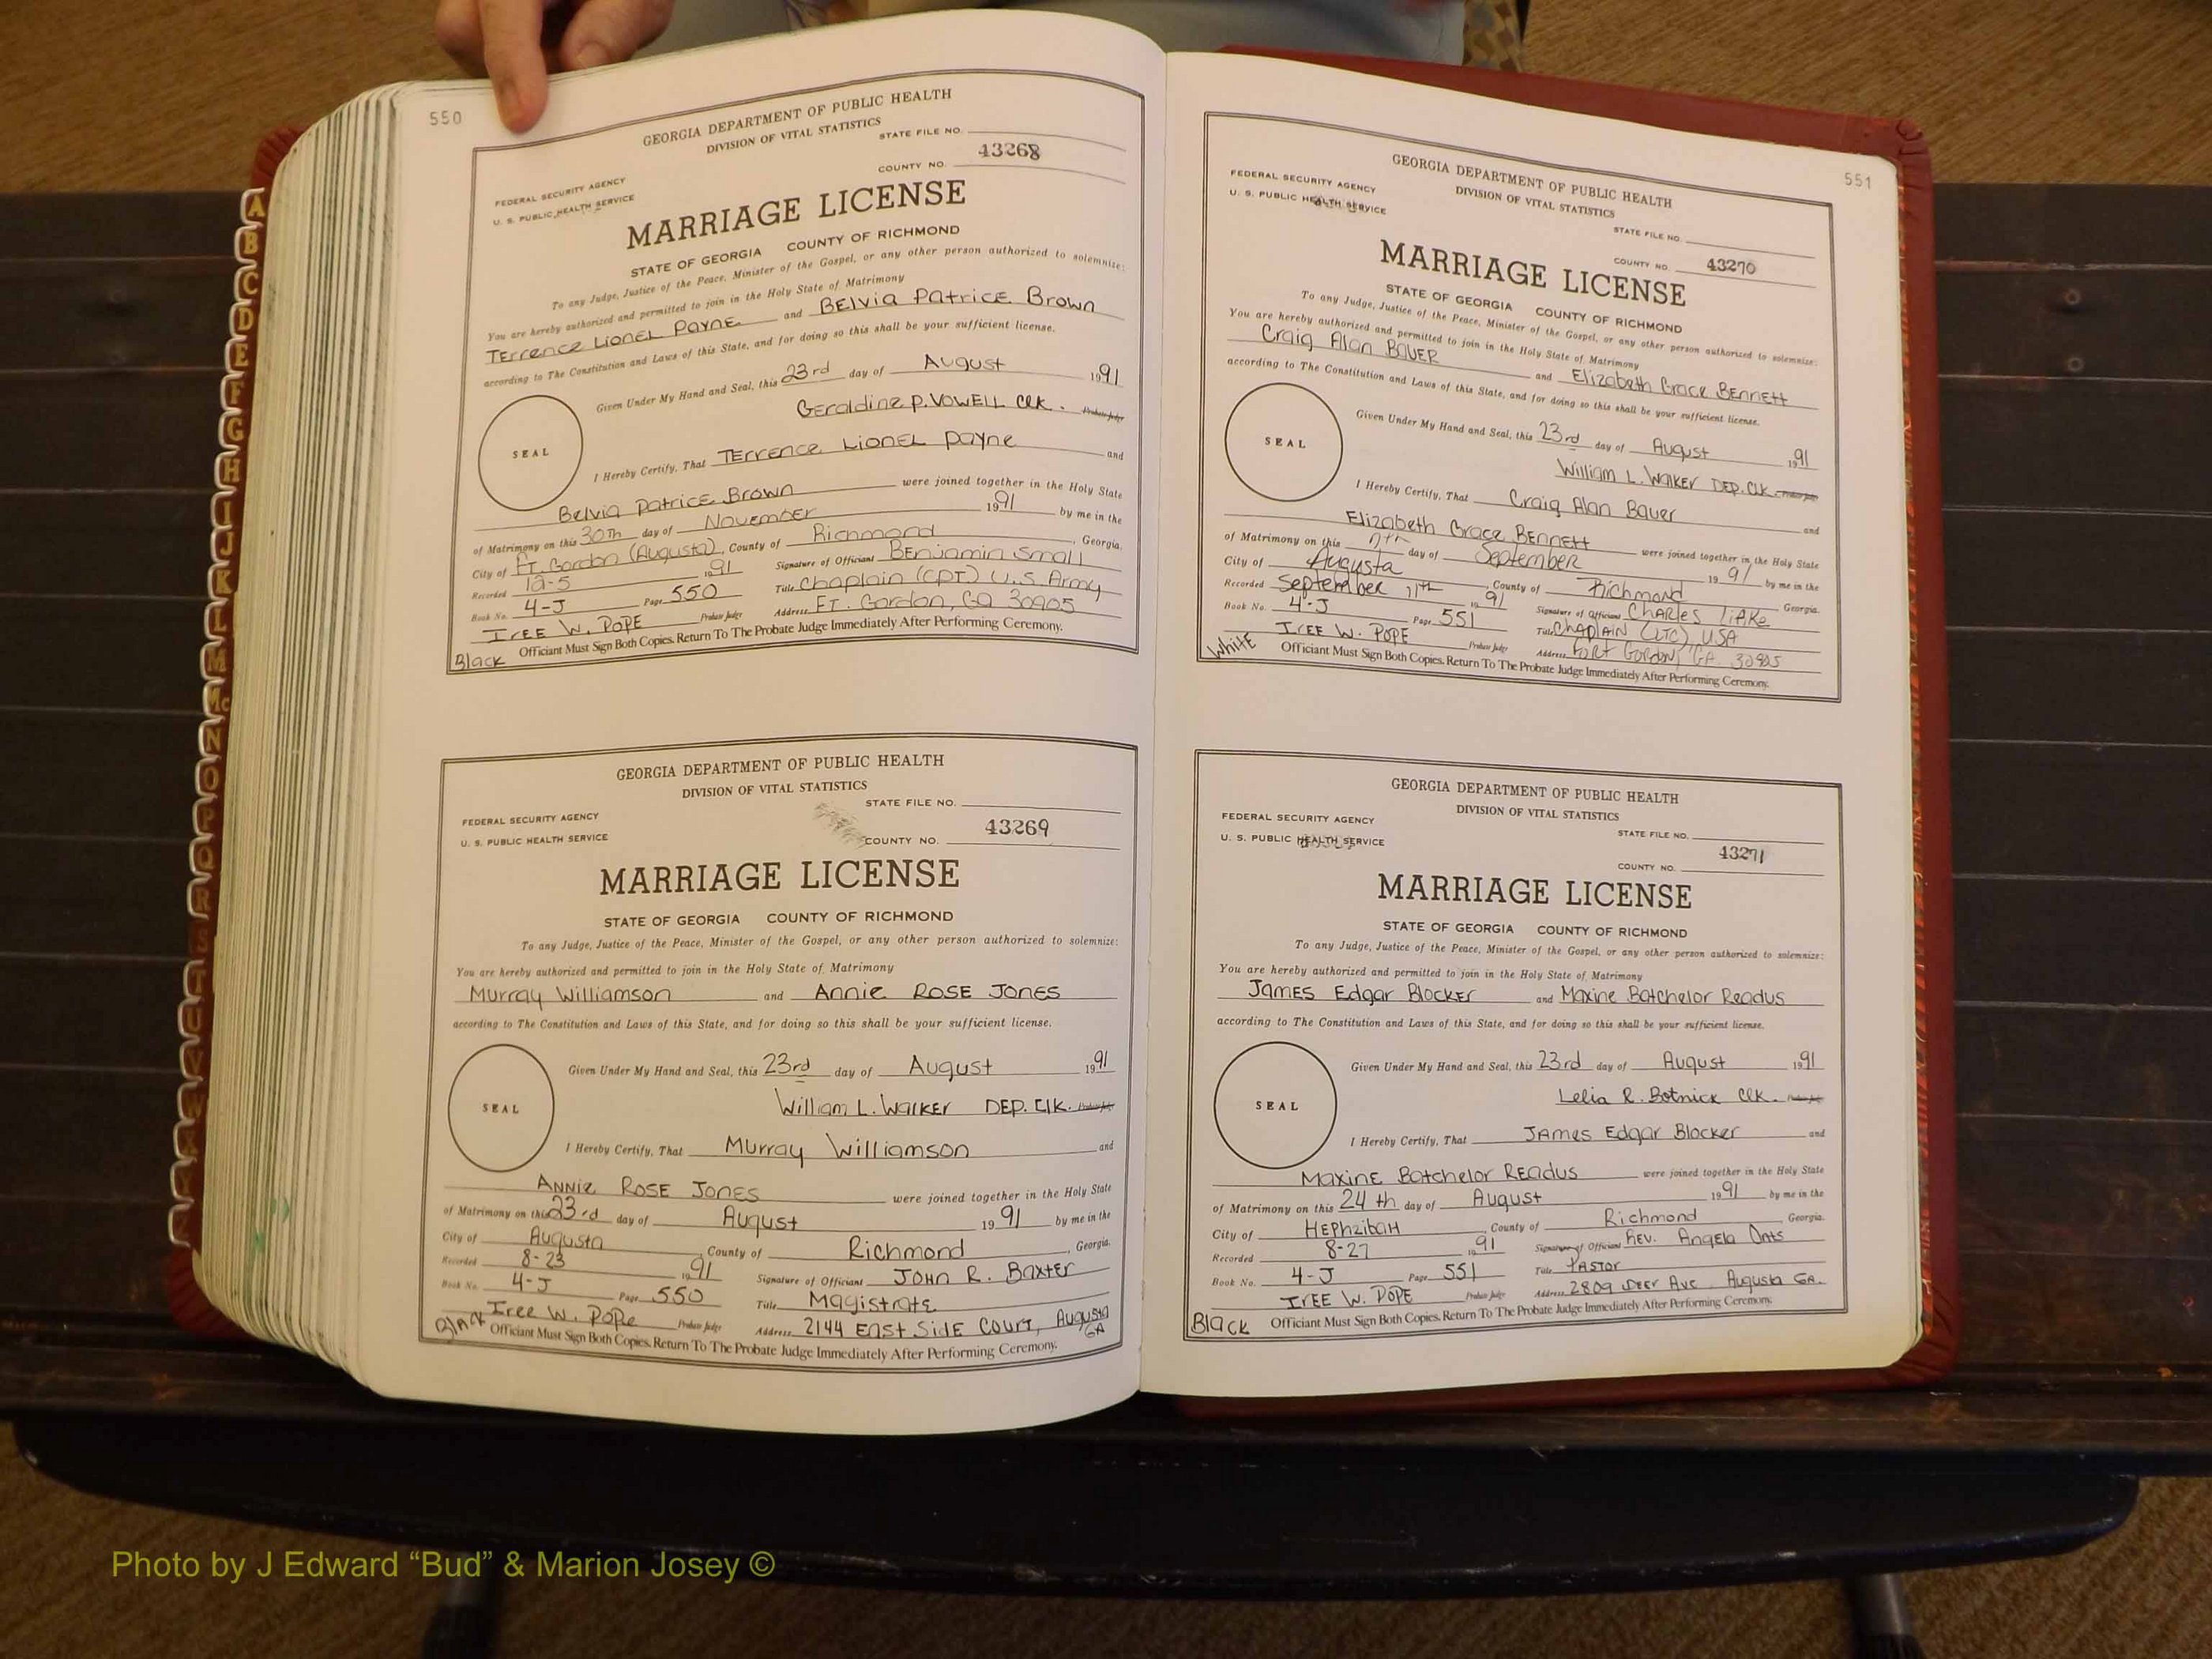 550
GEORGIA DEPARTMENT OF PUBLIC HEALTH
DIVISION OF VITAL STATISTICS
STATE FILE NO.
FEDERAL SECURITY AGENCY
COUNTY NO. 43268
U. S. PUBLIC HEALTH SERVICE
MARRIAGE LICENSE
STATE OF GEORGIA COUNTY OF RICHMOND
To any Judge, Justice of the Peace, Minister of the Gospel, or any other person authorized to solemnize:
You are hereby authorized and permitted to join in the Holy State of Matrimony
Terrence Lionel Payne and Belvia Patrice Brown
according to The Constitution and Laws of this State, and for doing so this shall be your sufficient license.
Given Under My Hand and Seal, this 23rd day of August 1991
Geraldine P. Vowell Clk. Probate Judge
SEAL
I Hereby Certify, That Terrence Lionel Payne and
Belvia Patrice Brown were joined together in the Holy State
of Matrimony on this 30th day of November 1991 by me in the
City of Ft. Gordon (Augusta), County of Richmond, Georgia.
Recorded 12-5 1991 Signature of Officiant Benjamin Small
Book No. 4-J Page 550 Title Chaplain (CPT) U.S. Army
Iree W. Pope Probate Judge Address Ft. Gordon, GA 30905
Black Officiant Must Sign Both Copies. Return To The Probate Judge Immediately After Performing Ceremony.
GEORGIA DEPARTMENT OF PUBLIC HEALTH
DIVISION OF VITAL STATISTICS
STATE FILE NO.
FEDERAL SECURITY AGENCY
U. S. PUBLIC HEALTH SERVICE
COUNTY NO. 43269
MARRIAGE LICENSE
STATE OF GEORGIA COUNTY OF RICHMOND
To any Judge, Justice of the Peace, Minister of the Gospel, or any other person authorized to solemnize:
You are hereby authorized and permitted to join in the Holy State of Matrimony
Murray Williamson and Annie Rose Jones
according to The Constitution and Laws of this State, and for doing so this shall be your sufficient license.
Given Under My Hand and Seal, this 23rd day of August 1991
William L. Walker Dep. Clk. Probate Judge
SEAL
I Hereby Certify, That Murray Williamson and
Annie Rose Jones were joined together in the Holy State
of Matrimony on this 23rd day of August 1991 by me in the
City of Augusta, County of Richmond, Georgia.
Recorded 8-23 1991 Signature of Officiant John R. Baxter
Book No. 4-J Page 550 Title Magistrate
Iree W. Pope Probate Judge Address 2144 East Side Court, Augusta GA
Officiant Must Sign Both Copies. Return To The Probate Judge Immediately After Performing Ceremony.
551
GEORGIA DEPARTMENT OF PUBLIC HEALTH
DIVISION OF VITAL STATISTICS
FEDERAL SECURITY AGENCY
U. S. PUBLIC HEALTH SERVICE
STATE FILE NO.
COUNTY NO. 43270
MARRIAGE LICENSE
STATE OF GEORGIA COUNTY OF RICHMOND
To any Judge, Justice of the Peace, Minister of the Gospel, or any other person authorized to solemnize:
You are hereby authorized and permitted to join in the Holy State of Matrimony
Craig Alan Bauer and Elizabeth Grace Bennett
according to The Constitution and Laws of this State, and for doing so this shall be your sufficient license.
Given Under My Hand and Seal, this 23rd day of August 1991
William L. Walker Dep. Clk. Probate Judge
SEAL
I Hereby Certify, That Craig Alan Bauer and
Elizabeth Grace Bennett were joined together in the Holy State
of Matrimony on this day of September 1991 by me in the
City of Augusta, County of Richmond Georgia.
Recorded September 11th 1991 Signature of Officiant Charles
Book No. 4-J Page 551 Title Chaplain (LTC) USA
Iree W. Pope Probate Judge Address Fort Gordon, GA 30905
White Officiant Must Sign Both Copies. Return To The Probate Judge Immediately After Performing Ceremony.
GEORGIA DEPARTMENT OF PUBLIC HEALTH
DIVISION OF VITAL STATISTICS
FEDERAL SECURITY AGENCY
STATE FILE NO.
U. S. PUBLIC HEALTH SERVICE
COUNTY NO. 43271
MARRIAGE LICENSE
STATE OF GEORGIA COUNTY OF RICHMOND
To any Judge, Justice of the Peace, Minister of the Gospel, or any other person authorized to solemnize:
You are hereby authorized and permitted to join in the Holy State of Matrimony
James Edgar Blocker and Maxine Batchelor Readus
according to The Constitution and Laws of this State, and for doing so this shall be your sufficient license.
Given Under My Hand and Seal, this 23rd day of August 1991
Lelia R. Botnick Clk. Probate Judge
SEAL
I Hereby Certify, That James Edgar Blocker and
Maxine Batchelor Readus were joined together in the Holy State
of Matrimony on this 24th day of August 1991 by me in the
City of Hephzibah County of Richmond Georgia.
Recorded 8-27 1991 Signature of Officiant Rev. Angela
Book No. 4-J Page 551 Title Pastor
Iree W. Pope Probate Judge Address 2809 Deer Ave Augusta GA.
Black Officiant Must Sign Both Copies. Return To The Probate Judge Immediately After Performing Ceremony.
A
B
C
D
E
F
G
H
I
J
K
L
M
Mc
N
O
P
Q
R
Photo by J Edward “Bud” & Marion Josey ©